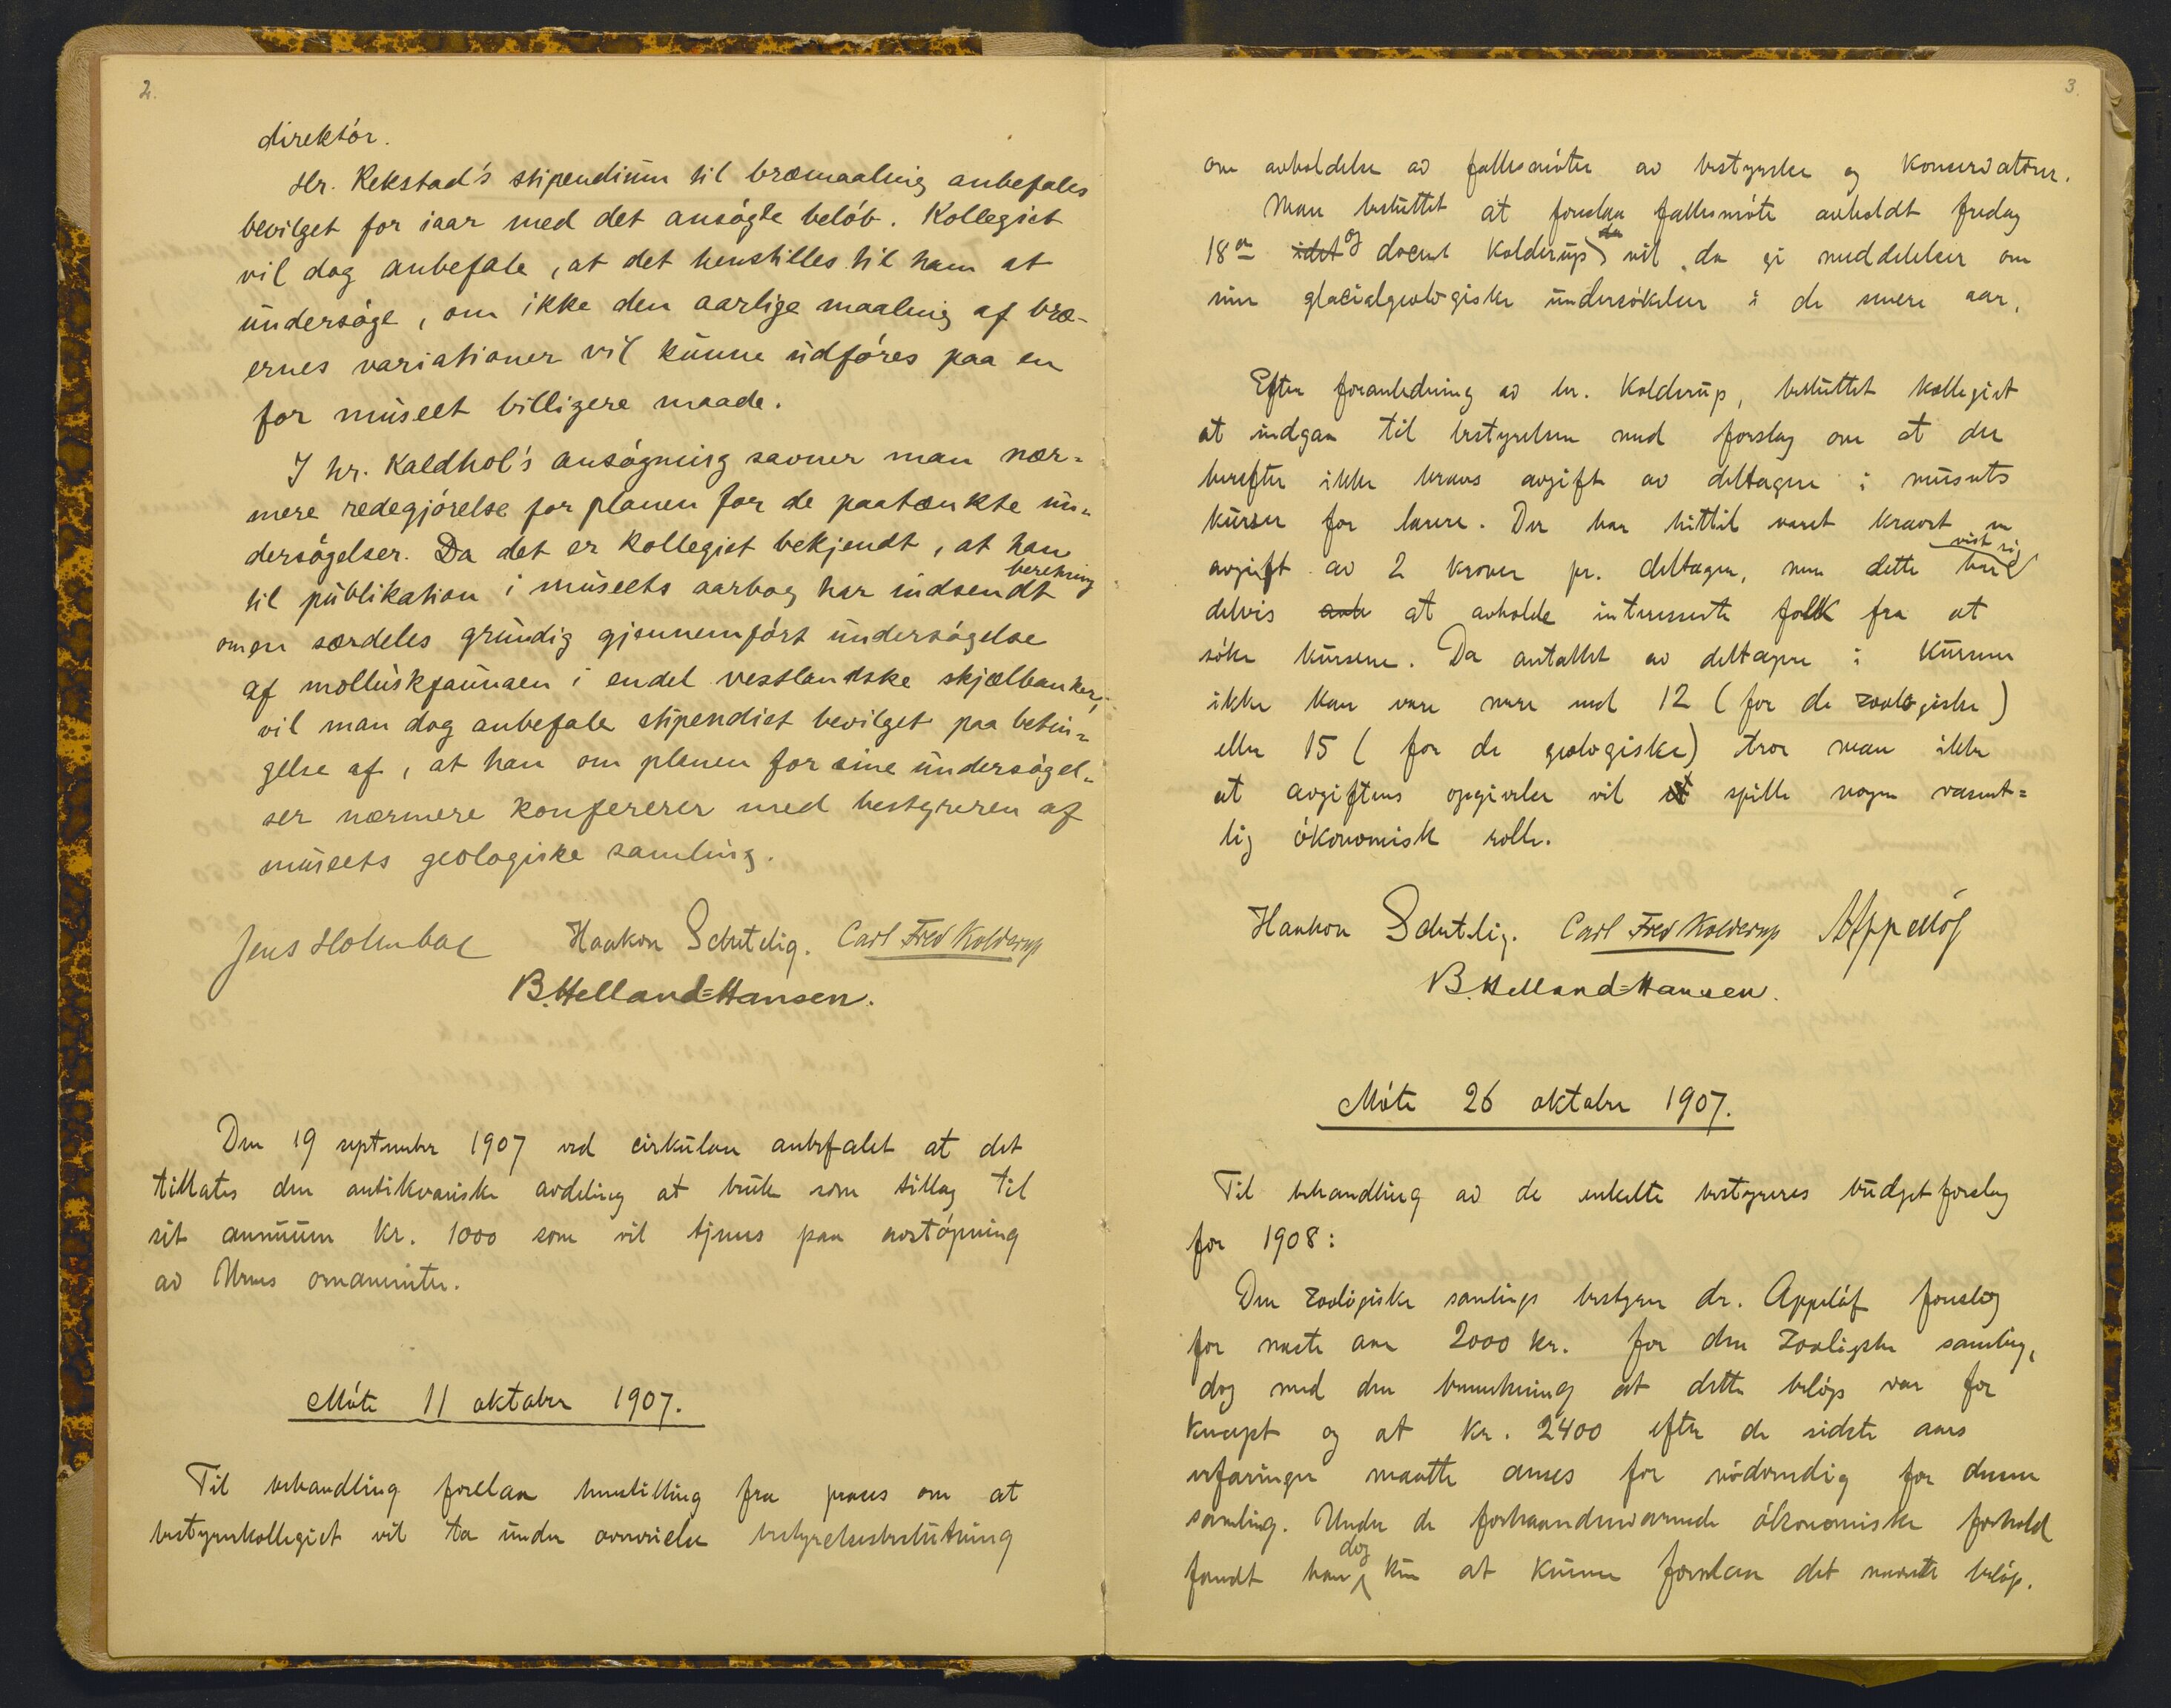 2.
direktör.
Hr. Rekstad's stipendium til bræmaaling anbefales
bevilget for iaar med det ansøgte beløb. Kollegiet
vil dog anbefale, at det henstilles til ham at
undersøge, om ikke den aarlige maaling af bræ-
ernes variationer vil kunne udføres paa en
for museet billigere maade.
I hr. Kaldhol's ansøgning savner man nær-
mere redegjørelse for planen for de paatænkte un-
dersøgelser. Da det er kollegiet bekjendt, at han
til publikation i museets aarbog har indsendt beretning
om en særdeles grundig gjennemført undersøgelse
af molluskfaunaen i endel vestlandske skjælbanker,
vil man dog anbefale stipendiet bevilget paa betin-
gelse af, at han om planen for sine undersøgel-
ser nærmere konfererer med bestyreren af
museets geologiske samling.
Jens Holmboe Haakon Schetelig. Carl Fred Kolderup
B. Helland-Hansen.
Den 19 september 1907 ved cirkulære anbefalet at det
tillates den antikvariske avdeling at bruke som tillæg til
sit annuum kr. 1000 som vil tjenes paa avstøpning
av Urnes ornamenter.
Møte 11 oktober 1907.
Til behandling forelaa henstilling fra præses om at
bestyrerkollegiet vil ta under overveielse bestyrelsesbeslutning
3.
om avholdelse av fællesmøter av bestyrelse og konservatorer.
Man besluttet at foreslaa fællesmøte avholdt fredag
18de idet og docent Kolderup da vil da gi meddelelser om
sine glacialgeologiske undersøkelser i de senere aar.
Efter foranledning av hr. Kolderup, besluttet kollegiet
at indgaa til bestyrelsen med forslag om at der
herefter ikke kræves avgift av deltagere i museets
kurser for lærere. Der har hittil været krævet en
avgift av 2 kroner pr. deltager, men dette har vist sig
delvis at avholde interesserte folk fra at
søke kursene. Da antallet av deltagere i kursene
ikke kan være mere end 12 (for de zoologiske)
eller 15 (for de geologiske) tror man ikke
at avgiftens opgivelse vil spille nogen væsent-
lig økonomisk rolle.
Haakon Schetelig. Carl Fred Kolderup A Appellöf
B. Helland-Hansen.
Møte 26 oktober 1907.
Til behandling av de enkelte bestyreres budgetforslag
for 1908:
Den zoologiske samlings bestyrer dr. Appellöf foreslog
for næste aar 2000 kr. for den zoologiske samling,
dog med den bemerkning at dette beløp var for
knapt og at kr. 2400 efter de sidste aars
erfaringer maatte anses for nødvendig for denne
samling. Under de forhaandenværende økonomiske forhold
fandt han dog kun at kunne foreslaa det nævnte beløp.